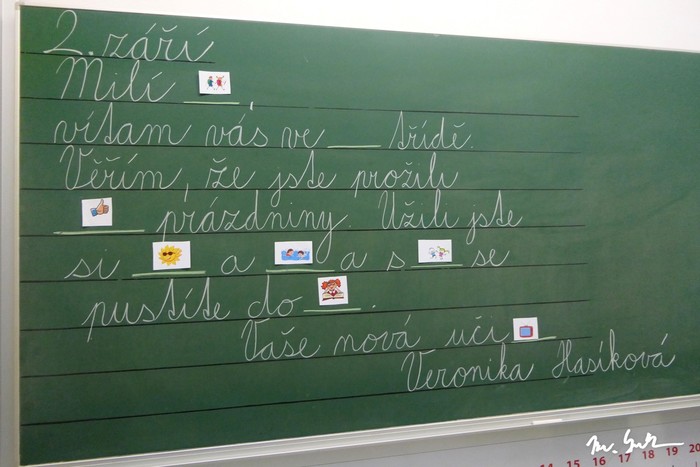 2. září
Milí ____,
vítam vás ve ____ třídě.
Věřím, že jste prožili
____ prázdniny. Užili jste
si ____ a ____ a s ____ se
pustíte do ____.
Vaše nová uči____
Veronika Hasíková
14 15 16 17 18 19 20